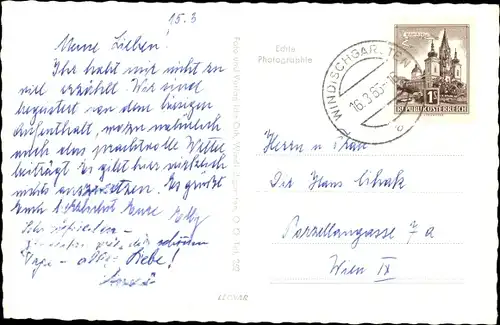 15.3
Meine Lieben!
Ihr habt mir nicht zu
viel erzählt. Wir sind
begeistert von dem hiesigen
Aufenthalt, wozu natürlich
auch das prachtvolle Wetter
beiträgt. Es gibt hier wirklich
nichts auszusetzen. Es grüßt
Euch herzlichst Eure
Sehr zufrieden –
schönen
Tage – alles Liebe!
Echte
Photographie
WINDISCHGARSTEN
16.3.63
MARIAZELL
1S
REPUBLIK ÖSTERREICH
Herrn u Frau
Dr Hans
Porzellangasse 7a
Wien IX
LEDWAR